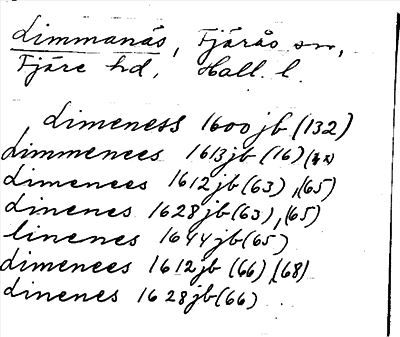 Limmanäs, Fjärås sn,
Fjäre hd, Hall. l.
Limeness 1600 jb (132)
Limmenees 1613 jb (16)
Limenees 1612 jb (63), (65)
Linenes 1628 jb (63), (65)
Linenes 1644 jb (65)
Limenees 1612 jb (66), (68)
Linenes 1628 jb (66)